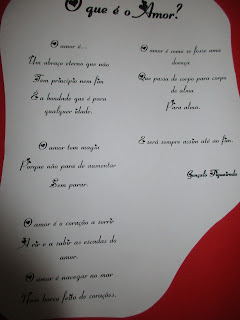 O que é o Amor?
O amor é...
Um abraço eterno que não
Tem princípio nem fim
E a bondade que é para
qualquer idade.
O amor tem magia
Porque não para de aumentar
Sem parar.
O amor é o coração a sorrir
A rir e a subir as escadas do
amor.
O amor é navegar no mar
Num barco feito de corações.
O amor é como se fosse uma
doença
Que passa de corpo para corpo
de alma
Para alma.
E será sempre assim até ao fim.
Gonçalo Figueiredo